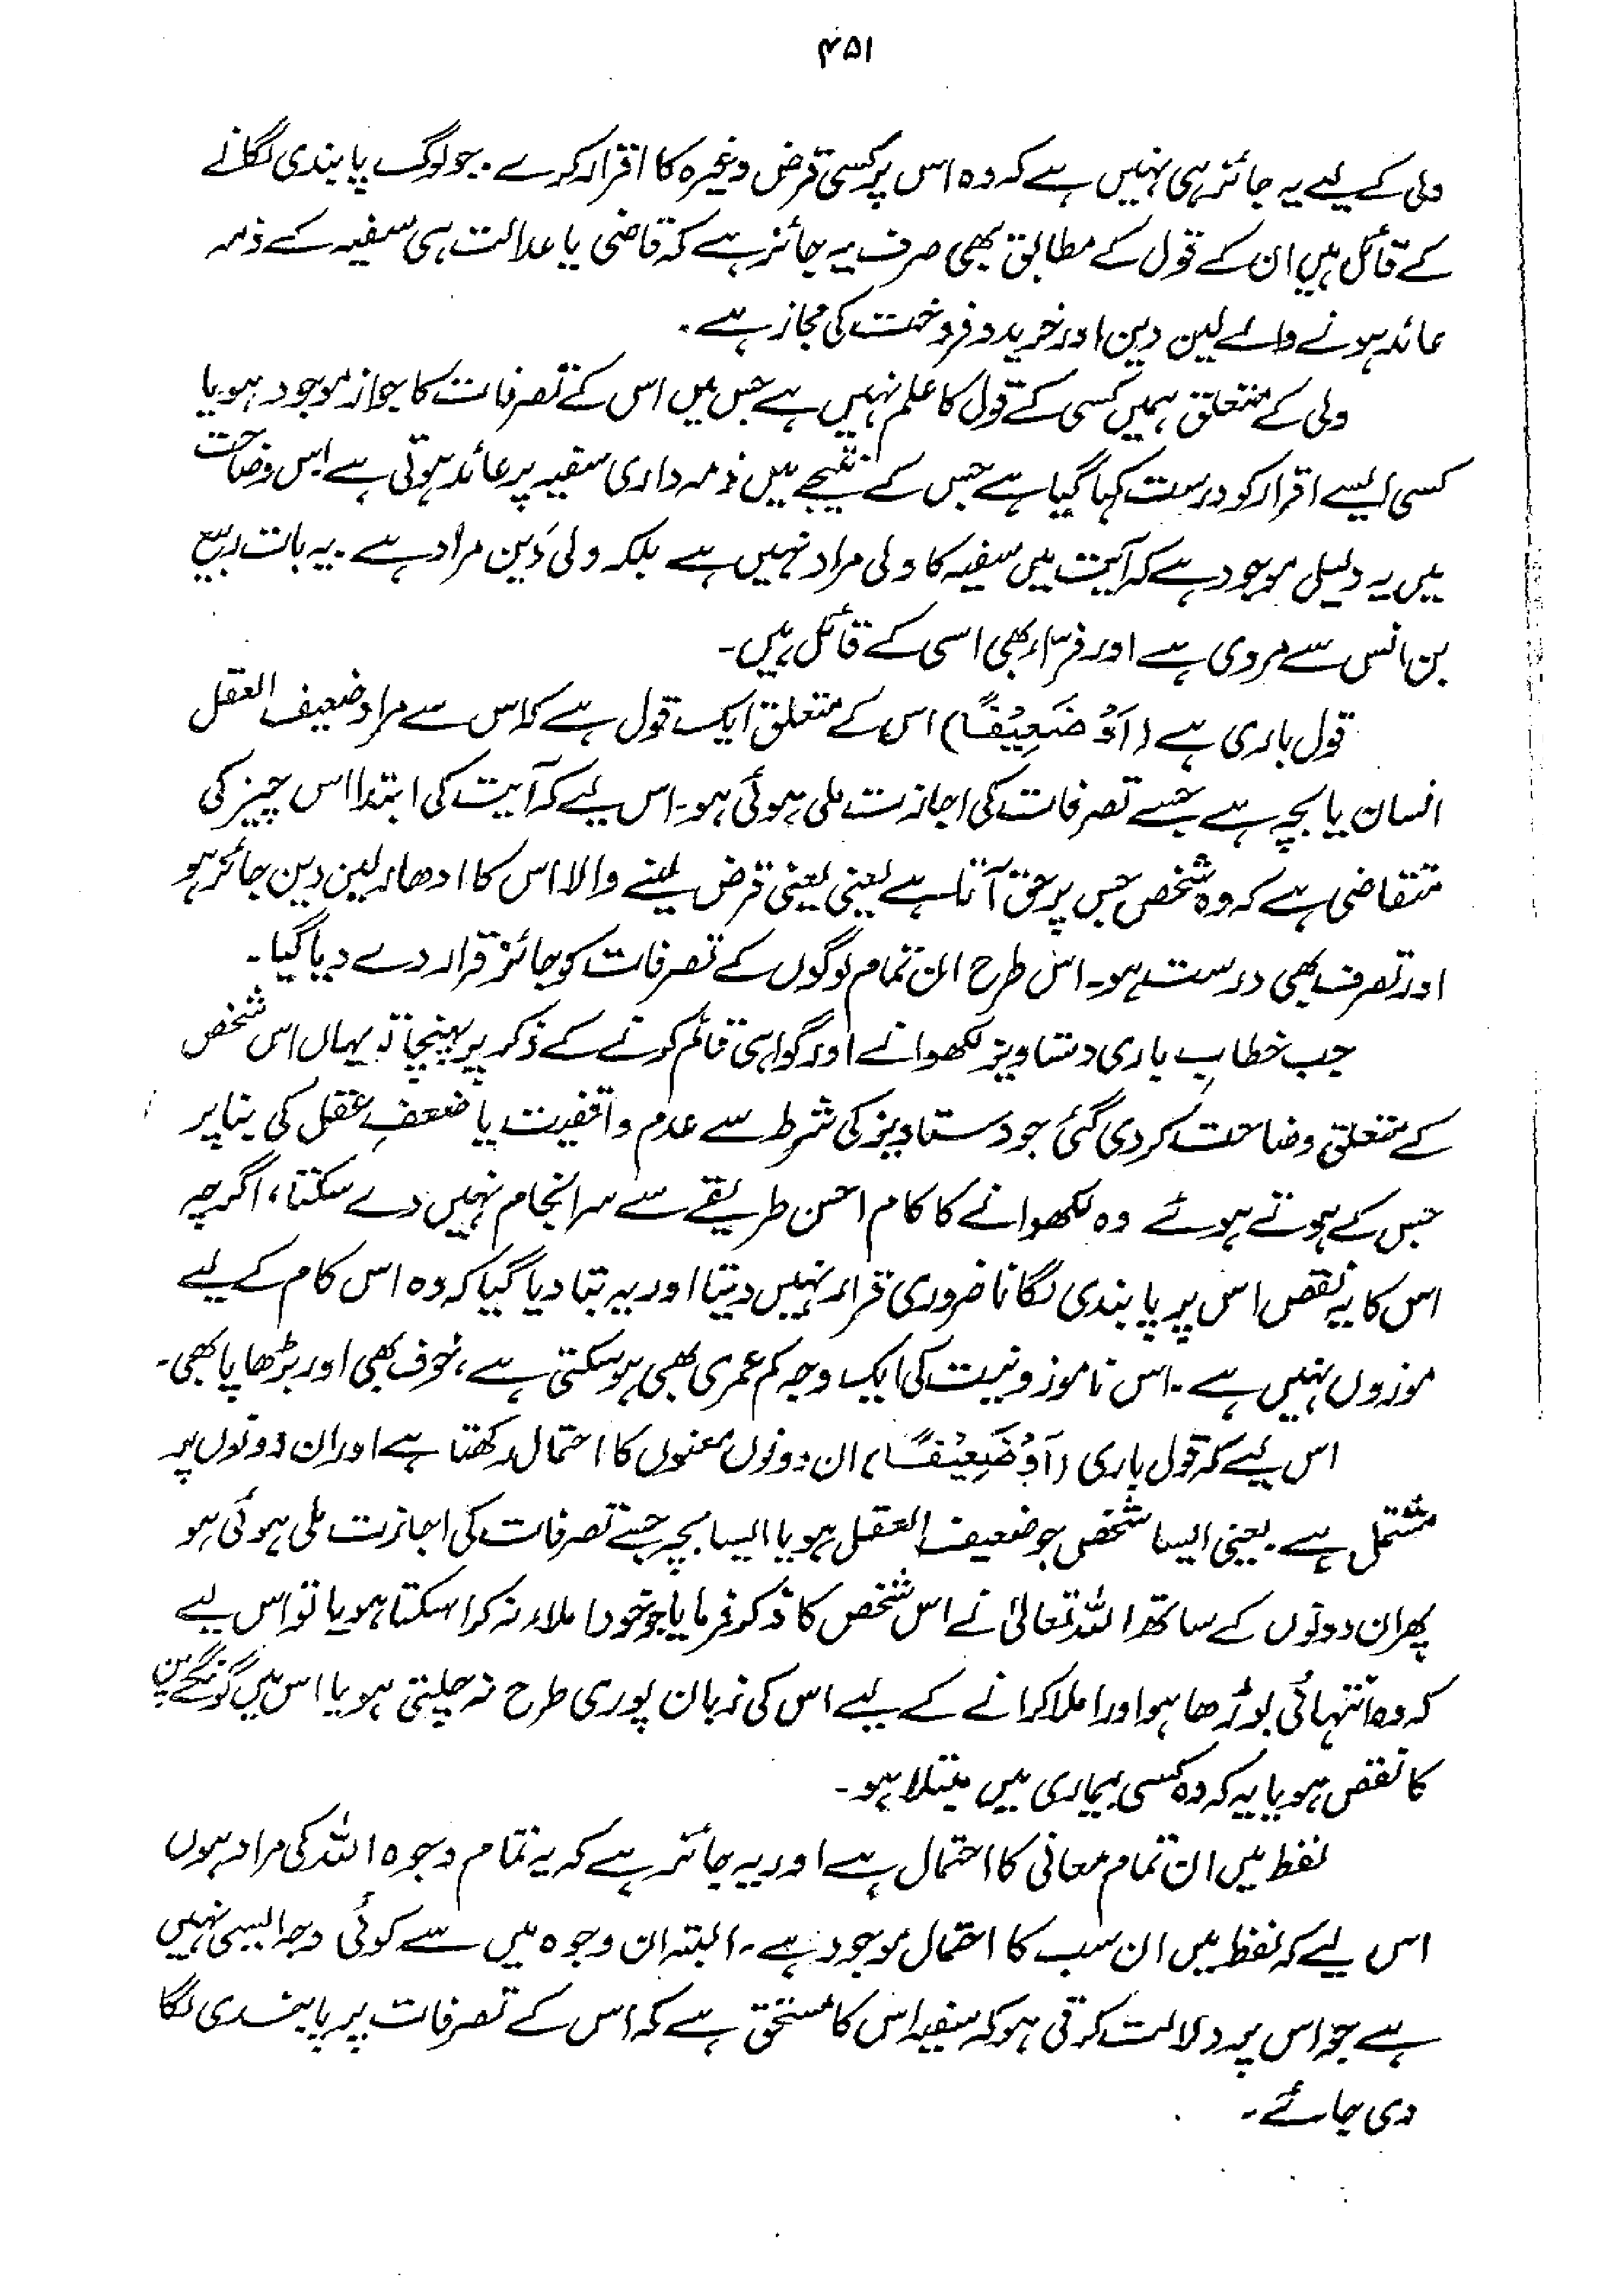 ۴۵۱
ولی کے لیے یہ جائز ہی نہیں ہے کہ وہ اس پر کسی قرض وغیرہ کا اقرار کرے۔ جو لوگ پابندی لگانے
کے قائل ہیں ان کے قول کے مطابق بھی صرف یہ جائز ہے کہ قاضی یا عدالت ہی سفیہ کے ذمہ
عائد ہونے والے لین دین اور خرید و فروخت کی مجاز ہے۔
ولی کے متعلق ہمیں کسی کے قول کا علم نہیں ہے جس میں اس کے تصرفات کا جواز موجود ہو یا
کسی ایسے اقرار کو درست کہا گیا ہے جس کے نتیجے میں ذمہ داری سفیہ پر عائد ہوتی ہے اس وضاحت
میں یہ دلیل موجود ہے کہ آیت میں سفیہ کا ولی مراد نہیں ہے بلکہ ولی دَین مراد ہے۔ یہ بات ربیع
بن انس سے مروی ہے اور فرّاء بھی اسی کے قائل ہیں۔
قول باری ہے (اَوْ ضَعِیْفًا) اس کے متعلق ایک قول ہے کہ اس سے مراد ضعیف العقل
انسان یا بچہ ہے جسے تصرفات کی اجازت ملی ہوئی ہو۔ اس لیے کہ آیت کی ابتدا اس چیز کی
متقاضی ہے کہ وہ شخص جس پر حق آتا ہے یعنی یعنی قرض لینے والا اس کا ادھار لین دین جائز ہو
اور تصرف بھی درست ہو۔ اس طرح ان تمام لوگوں کے تصرفات کو جائز قرار دے دیا گیا۔
جب خطابِ باری دستاویز لکھوانے اور گواہی قائم کرنے کے ذکر پر پہنچا تو یہاں اس شخص
کے متعلق وضاحت کر دی گئی جو دستاویز کی شرط سے عدم واقفیت یا ضعفِ عقل کی بنا پر
جس کے ہوتے ہوئے وہ لکھوانے کا کام احسن طریقے سے سرانجام نہیں دے سکتا، اگرچہ
اس کا یہ نقص اس پر پابندی لگانا ضروری قرار نہیں دیتا اور یہ بتا دیا گیا کہ وہ اس کام کے لیے
موزوں نہیں ہے۔ اس ناموزونیت کی ایک وجہ کم عمری بھی ہو سکتی ہے، خوف بھی اور بڑھاپا بھی۔
اس لیے کہ قول باری (اَوْ ضَعِیْفًا) ان دونوں معنوں کا احتمال رکھتا ہے اور ان دونوں پر
مشتمل ہے۔ یعنی ایسا شخص جو ضعیف العقل ہو یا ایسا بچہ جسے تصرفات کی اجازت ملی ہوئی ہو
پھر ان دونوں کے ساتھ اللہ تعالیٰ نے اس شخص کا ذکر فرمایا جو خود املاء نہ کرا سکتا ہو یا تو اس لیے
کہ وہ انتہائی بوڑھا ہو اور املا کرانے کے لیے اس کی زبان پوری طرح نہ چلتی ہو یا اس میں گونگے پن
کا نقص ہو یا یہ کہ وہ کسی بیماری میں مبتلا ہو۔
لفظ میں ان تمام معانی کا احتمال ہے اور یہ جائز ہے کہ یہ تمام وجوہ اللہ کی مراد ہوں
اس لیے کہ لفظ میں ان سب کا احتمال موجود ہے۔ البتہ ان وجوہ میں سے کوئی وجہ ایسی نہیں
ہے جو اس پر دلالت کرتی ہو کہ سفیہ اس کا مستحق ہے کہ اس کے تصرفات پر پابندی لگا
دی جائے۔